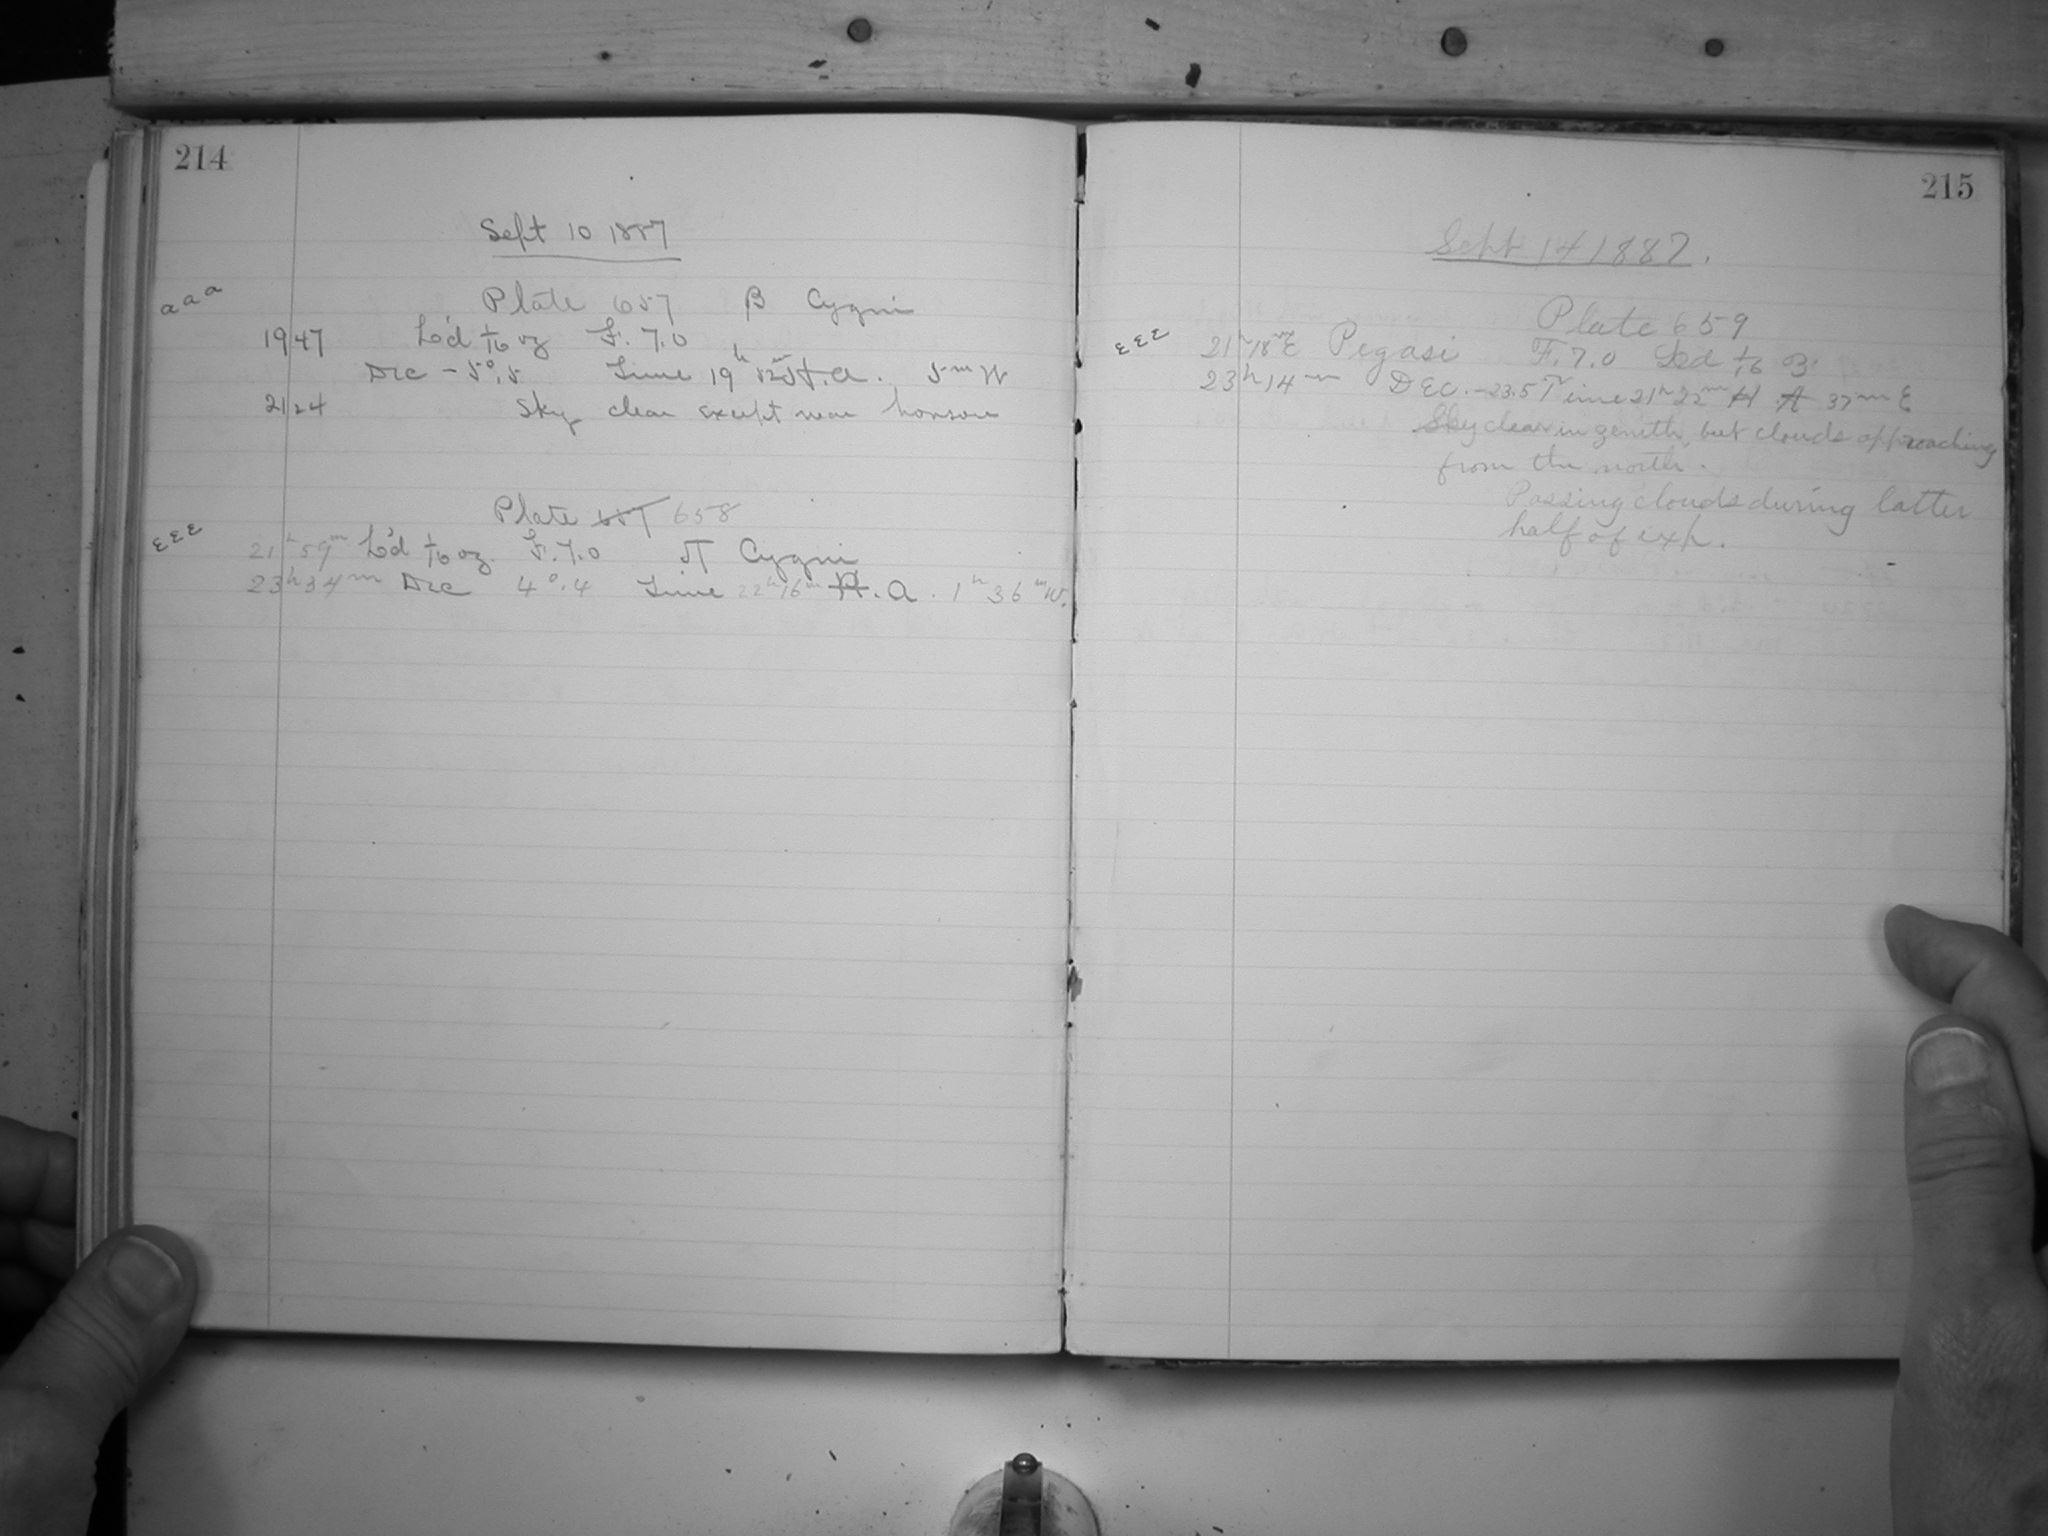 214
Sept 10 1887
a a a
Plate 657 β Cygni
19 47 L'd 1/16 oz F. 7.0
Dec - 5°.5 Time 19h 52m H.A. 5m W
21 24 Sky clear except near horizon
Plate 657 658
ε ε ε
21h 59m L'd 1/16 oz. F. 7.0 π Cygni
23h 34m Dec 4°.4 Time 22h 16m H.A. 1h 36m W.
215
Sept 14 1887.
Plate 659
ε ε ε
21h 18m ε Pegasi F. 7.0 Led 1/16 oz.
23h 14m DEC. -23.5 Time 21h 22m H A 37m E
Sky clear in zenith, but clouds approaching
from the north.
Passing clouds during latter
half of exp.